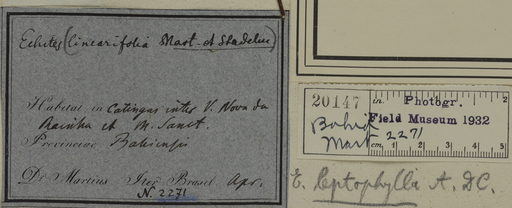 Echites (linearifolia Mart. et Stadelm)
Habitat in Catingas inter V. Nova da
Rainha et M. Sanct.
Provinciae Bahiensis
Dr. Martius Iter Brasil. Apr.
N. 2271
20147
in. Photogr. 2
Field Museum 1932
Bahia
Mart 2271
cm 1 2 3 4 5
E. leptophylla A. DC.